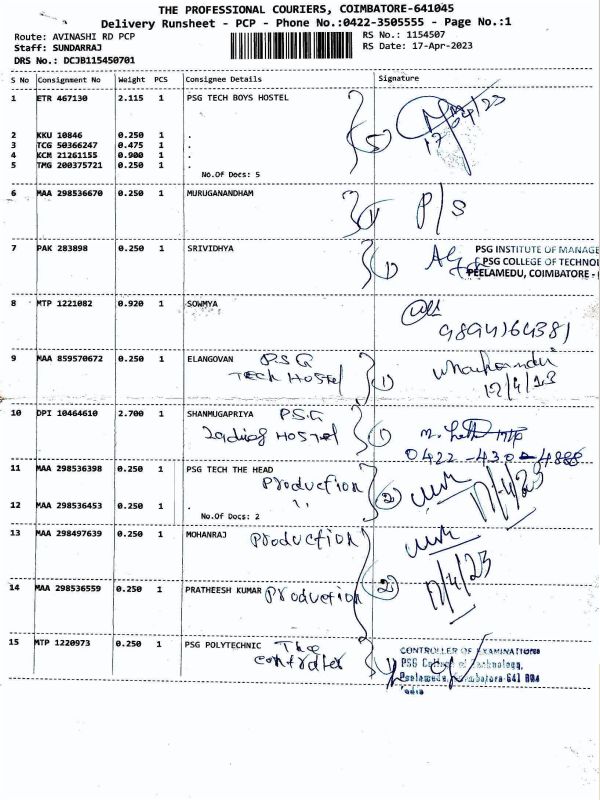 THE PROFESSIONAL COURIERS, COIMBATORE-641045
Delivery Runsheet - PCP - Phone No.:0422-3505555 - Page No.:1
Route: AVINASHI RD PCP RS No.: 1154507
Staff: SUNDARRAJ RS Date: 17-Apr-2023
DRS No.: DCJB115450701
S No Consignment No Weight PCS Consignee Details Signature
1 ETR 467130 2.115 1 PSG TECH BOYS HOSTEL
2 KKU 10846 0.250 1 .
3 TCG 50366247 0.475 1 .
4 KCM 21261155 0.900 1 .
5 TMG 200375721 0.250 1 .
No.Of Docs: 5
5
6 MAA 298536670 0.250 1 MURUGANANDHAM
1 P/S
7 PAK 283898 0.250 1 SRIVIDHYA
1
PSG INSTITUTE OF MANAGE
PSG COLLEGE OF TECHNOL
PEELAMEDU, COIMBATORE -
8 MTP 1221082 0.920 1 SOWMYA
9894164381
9 MAA 859570672 0.250 1 ELANGOVAN P.S.G
Tech Hostel 1
10 DPI 10464610 2.700 1 SHANMUGAPRIYA P.S.G
Ladies Hostel 1
0422-430-4888
11 MAA 298536398 0.250 1 PSG TECH THE HEAD
Production 2 17/4/23
12 MAA 298536453 0.250 1 .
No.Of Docs: 2
13 MAA 298497639 0.250 1 MOHANRAJ Production
17/4/23
14 MAA 298536559 0.250 1 PRATHEESH KUMAR Production 2
15 MTP 1220973 0.250 1 PSG POLYTECHNIC The
1
CONTROLLER OF EXAMINATIONS
PSG College of Technology,
Peelamedu, Coimbatore-641 004
India